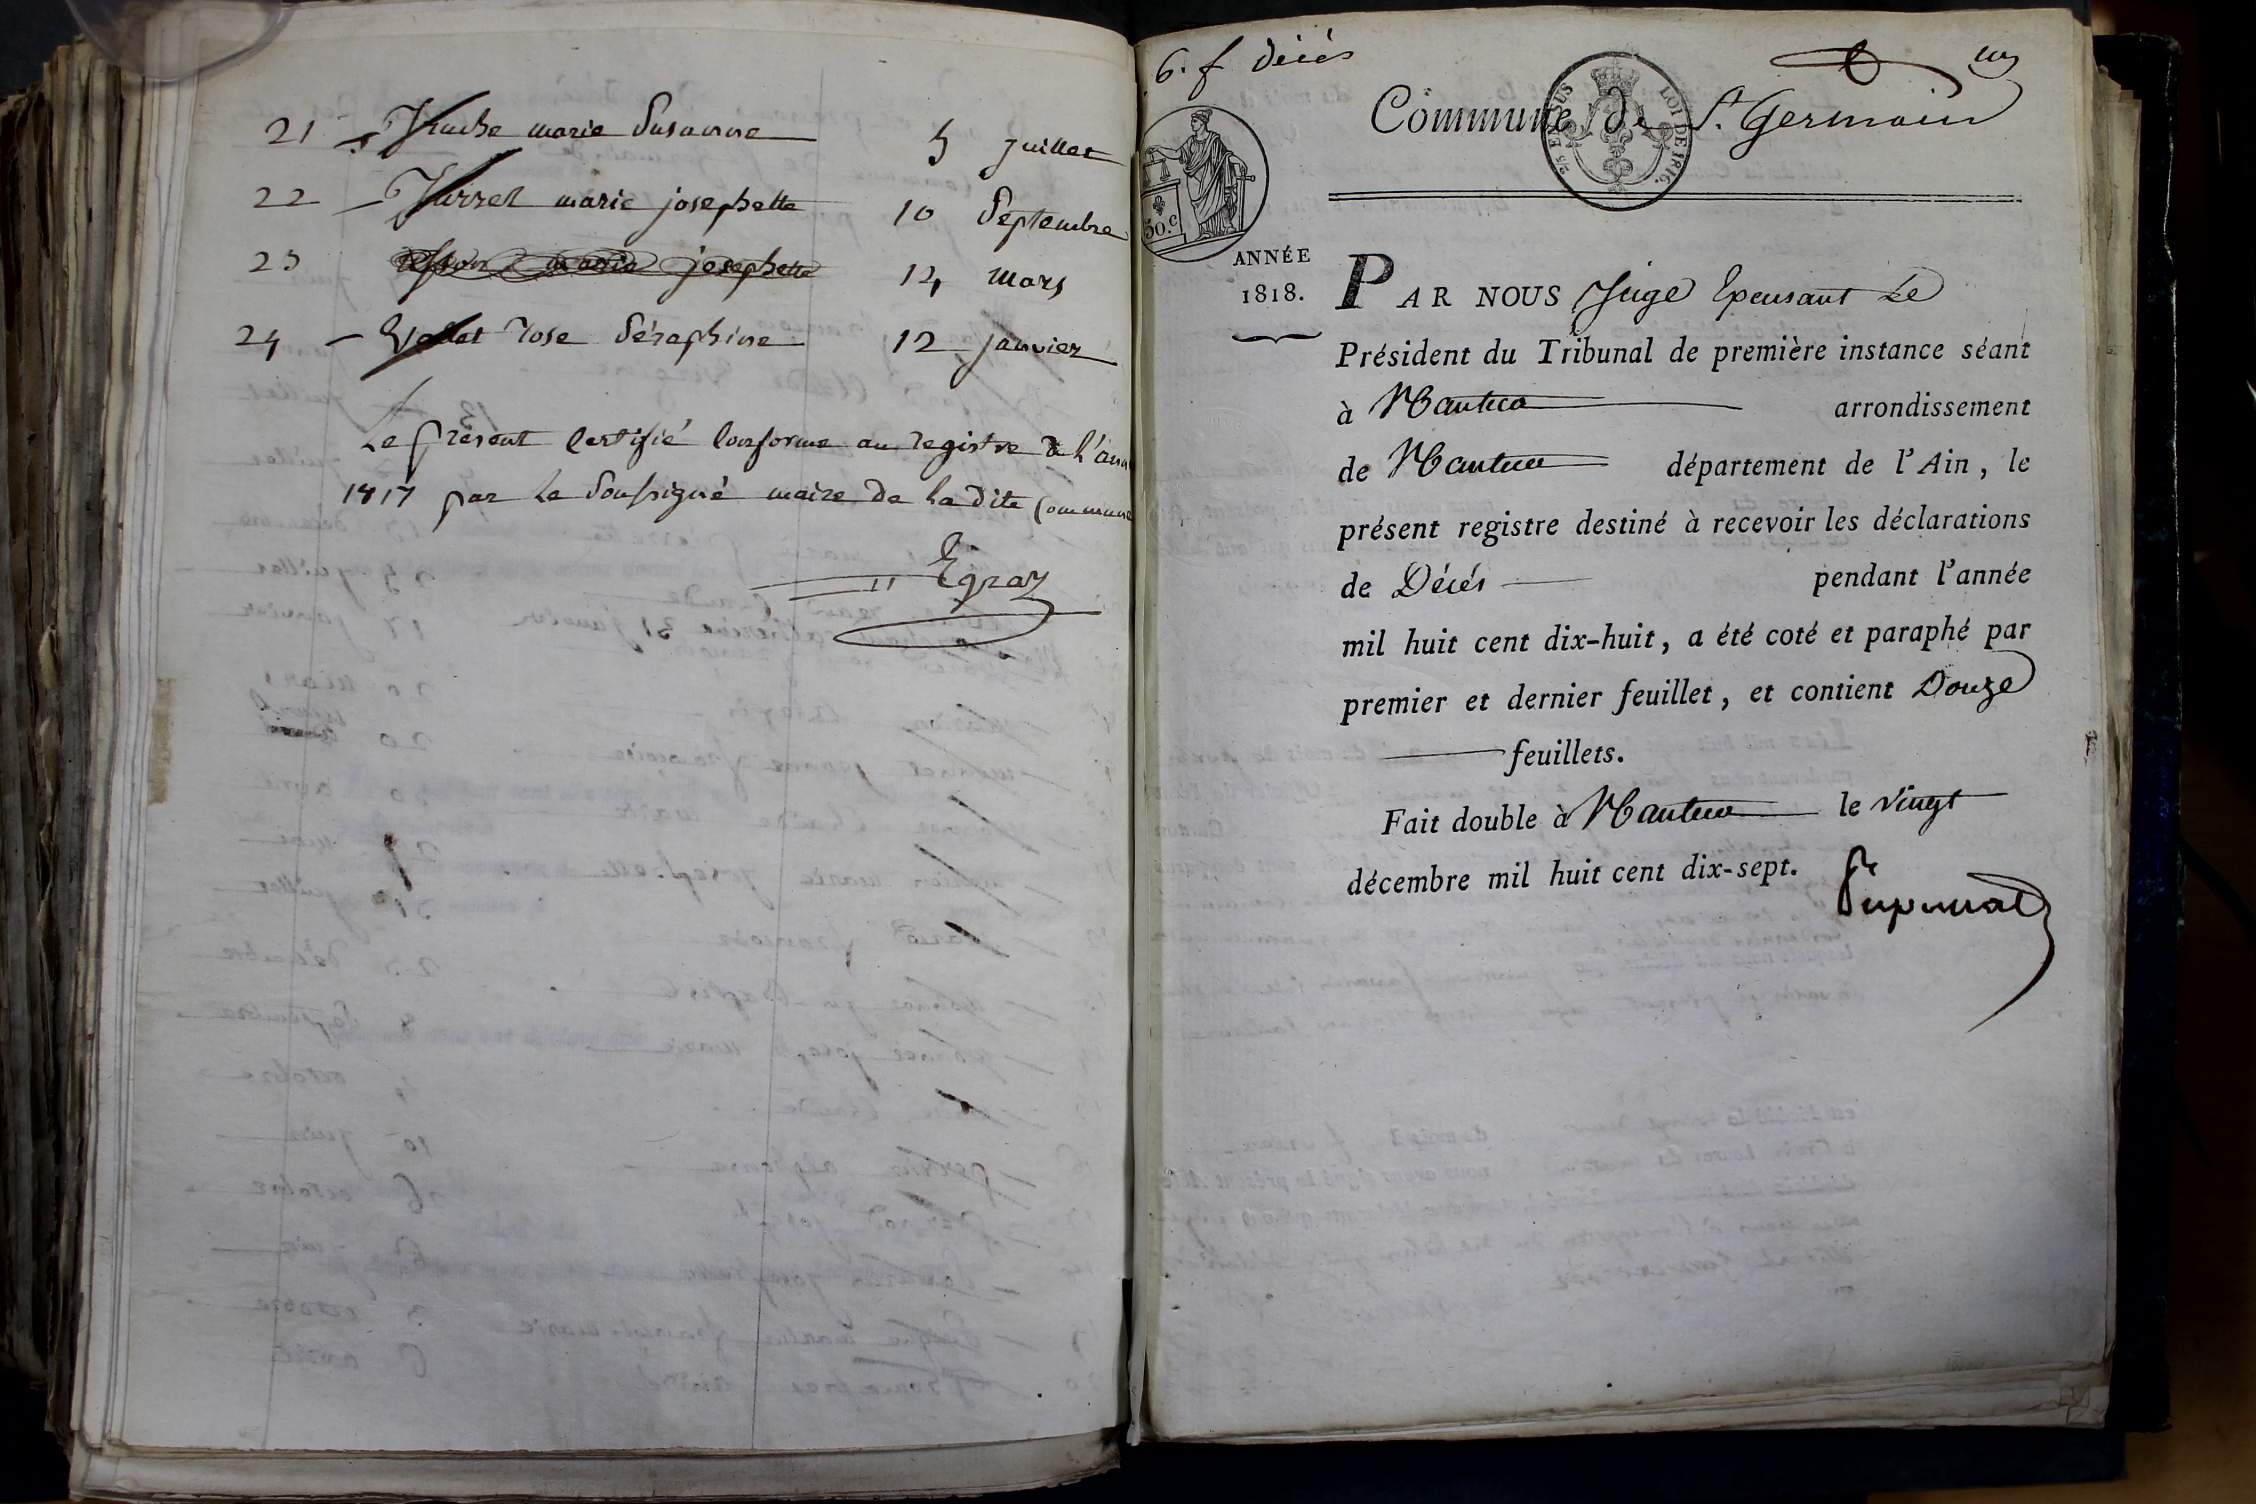 21 Truche marie Susanne 5 juillet
22 — Turrel marie josephette 10 Septembre
23 marie josephette 14 mars
24 — Vallet rose Séraphine 12 janvier
Le present certifié conforme au registre de l'ann
1817 par le Soussigné maire de la dite Commune
Egraz
6. f Décés
un
Commune de St. Germain
2/5 EN SUS
LOI DE 1816.
50.c
ANNÉE
1818.
PAR NOUS Juge Epensant Le
Président du Tribunal de première instance séant
à Nantua arrondissement
de Nantua département de l'Ain, le
présent registre destiné à recevoir les déclarations
de Décés pendant l'année
mil huit cent dix-huit, a été coté et paraphé par
premier et dernier feuillet, et contient Douze
feuillets.
Fait double à Nantua le vingt
décembre mil huit cent dix-sept.